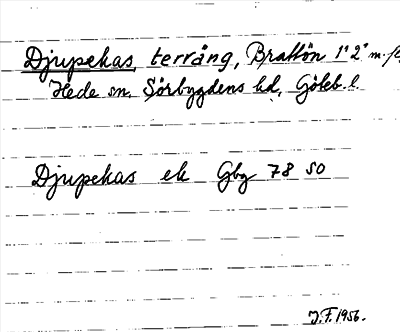 Djupekas, terräng, Brattön 1² 2° m. fl.
Hede sn, Sörbygdens hd, Göteb. l.
Djupekas ek Gbg 78 SO
J.F. 1956.